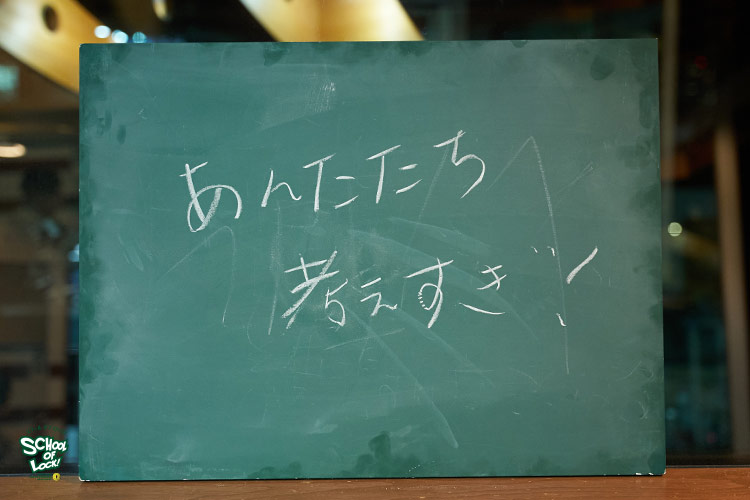 あんたたち
考えすぎ！
SCHOOL
OF
LOCK!